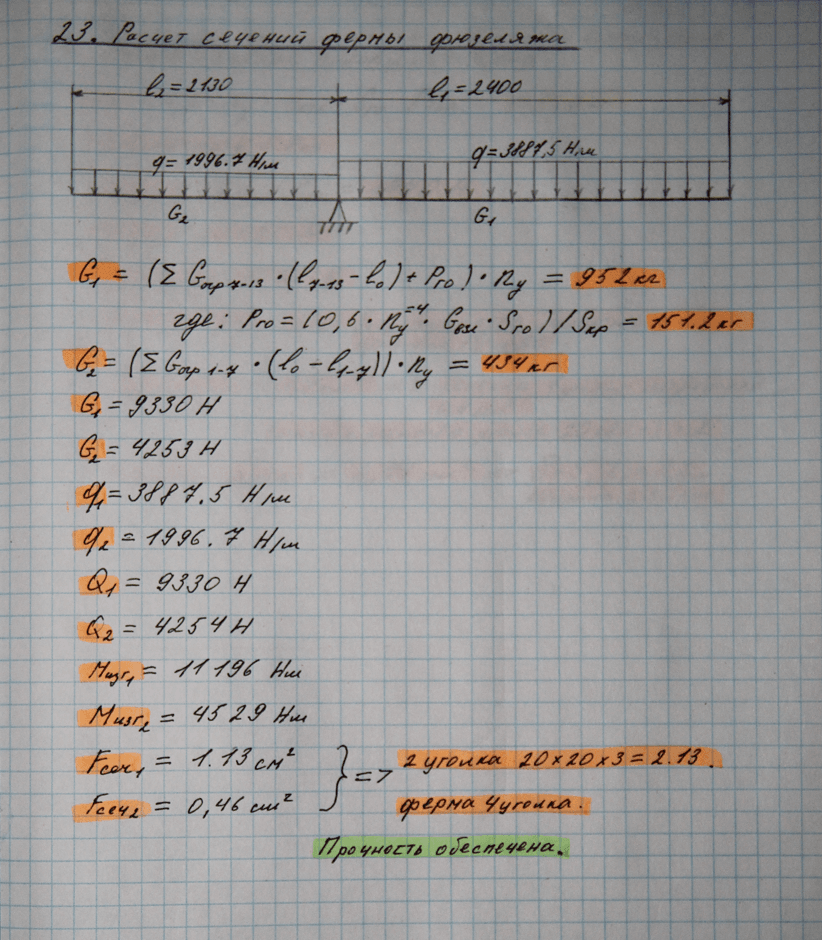 23. Расчет сечений фермы фюзеляжа
l₂=2130 l₁=2400
q=1996.7 Н/м q=3887,5 Н/м
G₂ G₁
G₁ = (Σ Gагр 7-13 · (l₇₋₁₃ - l₀) + Pго) · nу = 952 кг
где: Pго = (0,6 · nу⁼⁴ · Gвзл · Sго) / Sкр = 151.2 кг
G₂ = (Σ Gагр 1-7 · (l₀ - l₁₋₇)) · nу = 434 кг
G₁ = 9330 Н
G₂ = 4253 Н
q₁ = 3887.5 Н/м
q₂ = 1996.7 Н/м
Q₁ = 9330 Н
Q₂ = 4254 Н
Mизг₁ = 11196 Нм
Mизг₂ = 4529 Нм
Fсеч₁ = 1.13 см² } => 2 уголка 20×20×3 = 2.13.
Fсеч₂ = 0,46 см² ферма 4 уголка.
Прочность обеспечена.